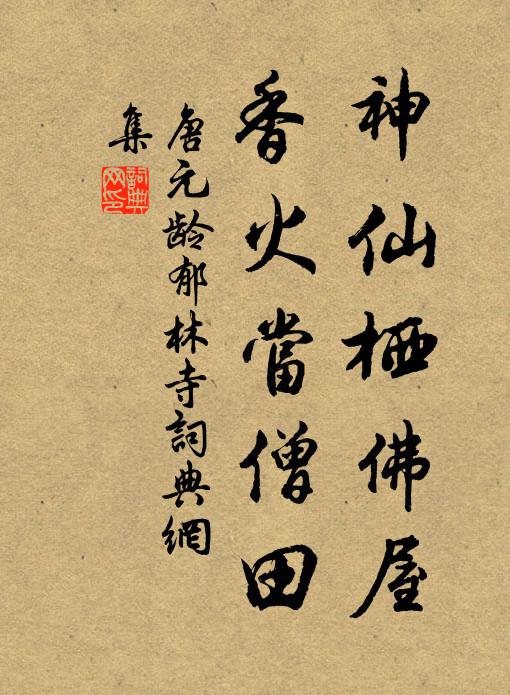 神仙栖佛屋
香火當僧田
唐元龄郁林寺詞典網
集
詞典网印